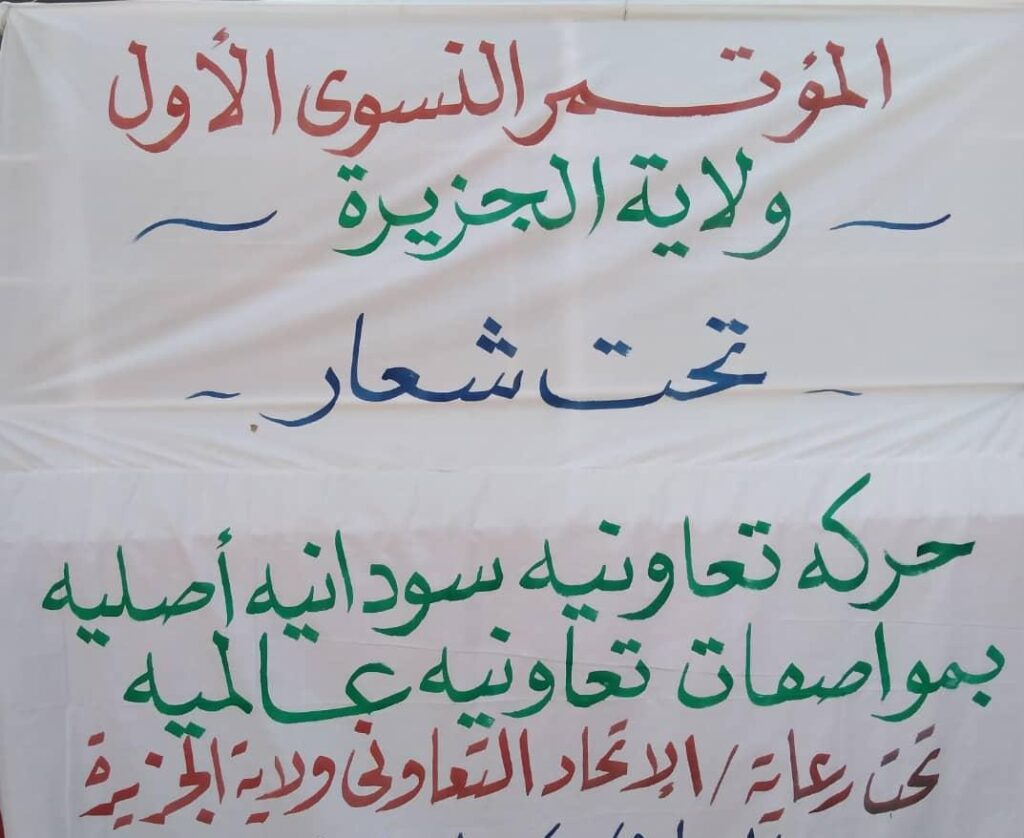 المؤتمر النسوى الأول
ولاية الجزيرة
تحت شعار
حركه تعاونيه سودانيه أصليه
بمواصفات تعاونيه عالميه
تحت رعاية / الإتحاد التعاونى ولاية الجزيرة